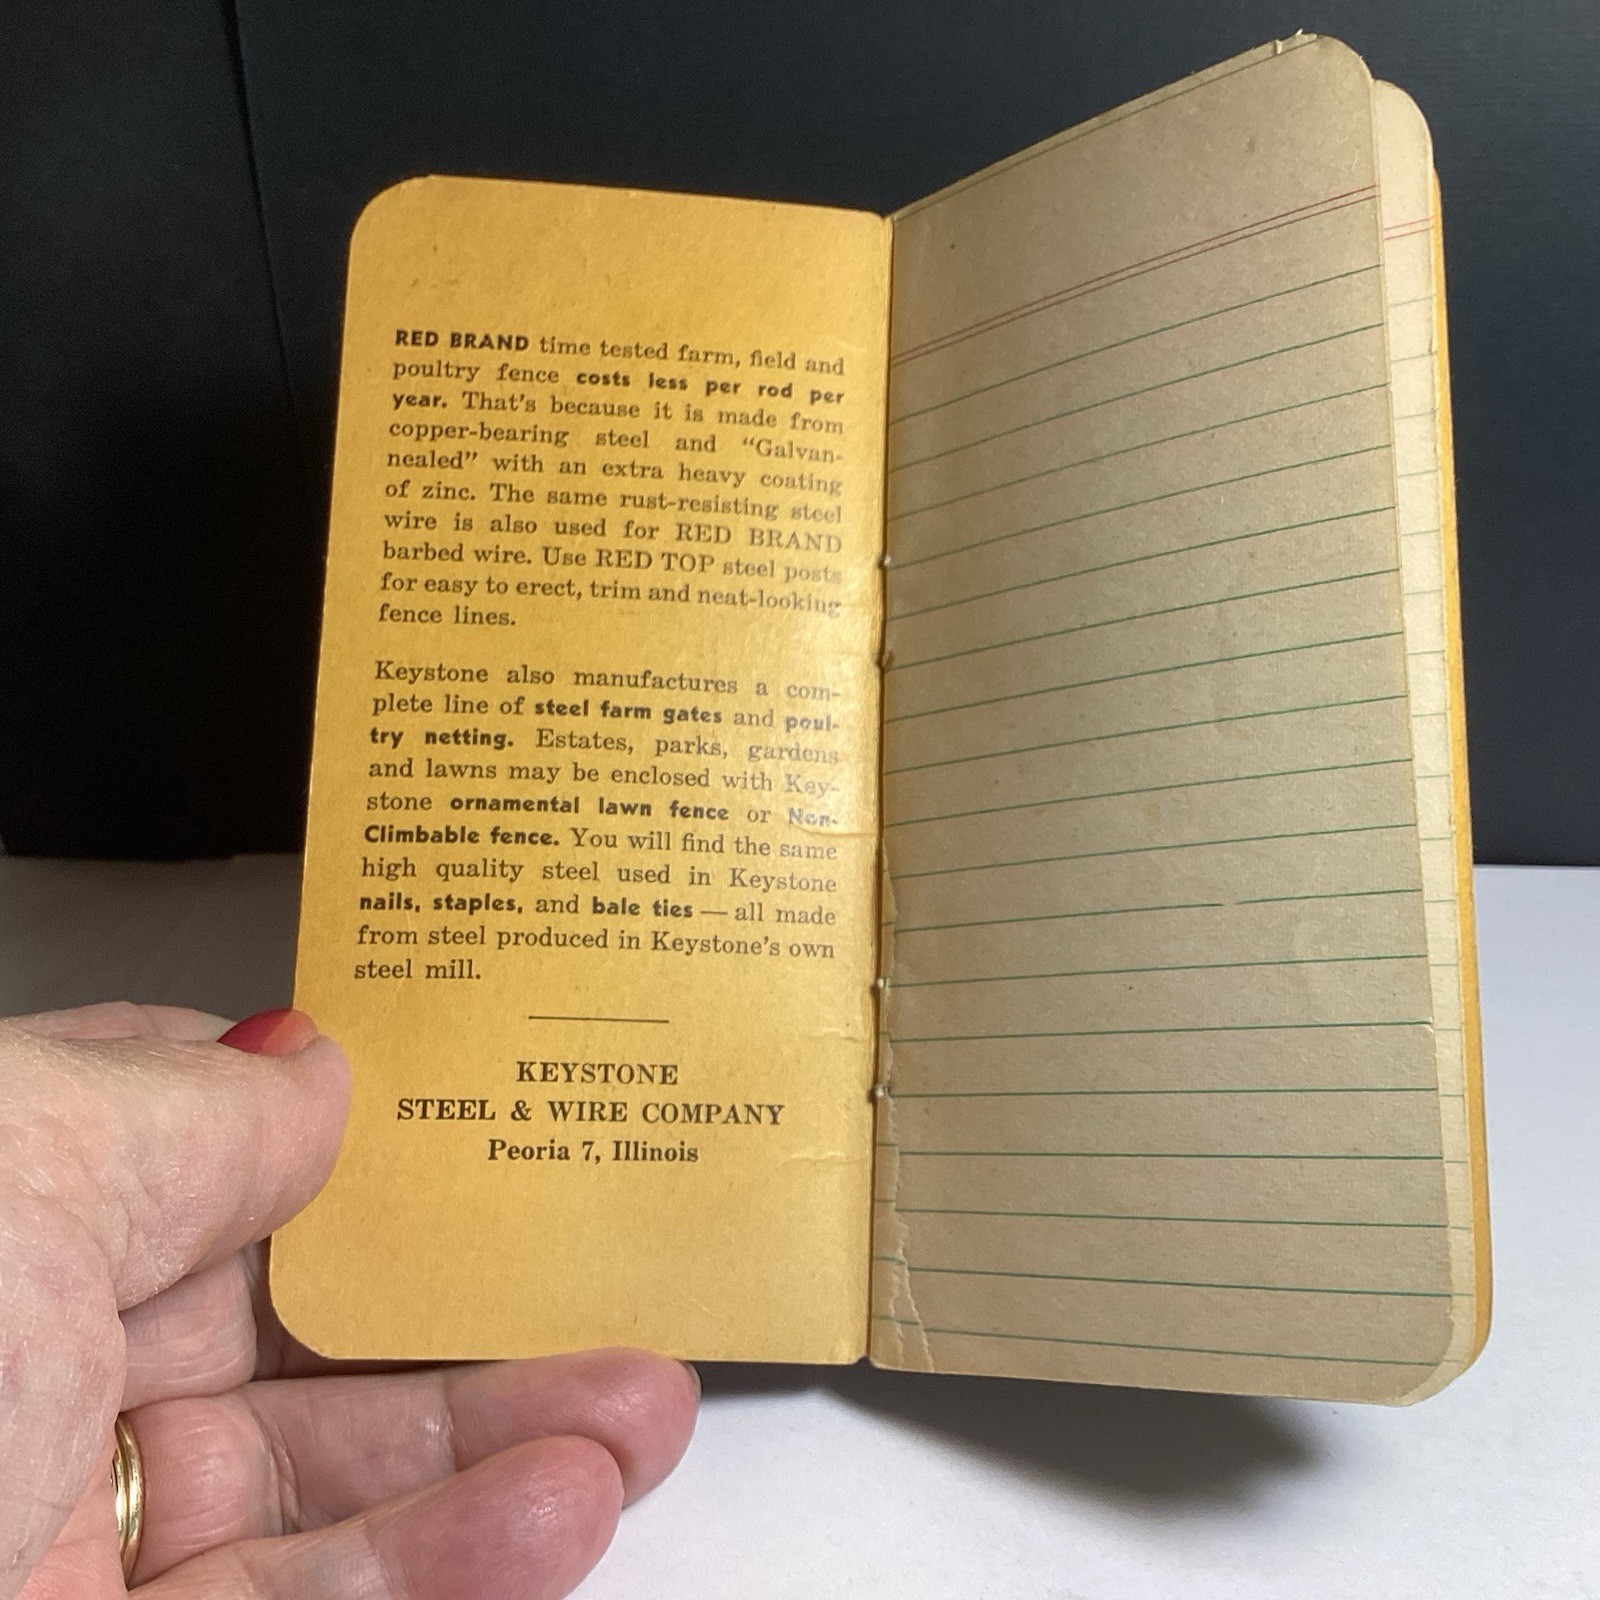 RED BRAND time tested farm, field and
poultry fence costs less per rod per
year. That's because it is made from
copper-bearing steel and “Galvan-
nealed” with an extra heavy coating
of zinc. The same rust-resisting steel
wire is also used for RED BRAND
barbed wire. Use RED TOP steel posts
for easy to erect, trim and neat-looking
fence lines.
Keystone also manufactures a com-
plete line of steel farm gates and poul-
try netting. Estates, parks, gardens
and lawns may be enclosed with Key-
stone ornamental lawn fence or Non-
Climbable fence. You will find the same
high quality steel used in Keystone
nails, staples, and bale ties — all made
from steel produced in Keystone's own
steel mill.
KEYSTONE
STEEL & WIRE COMPANY
Peoria 7, Illinois